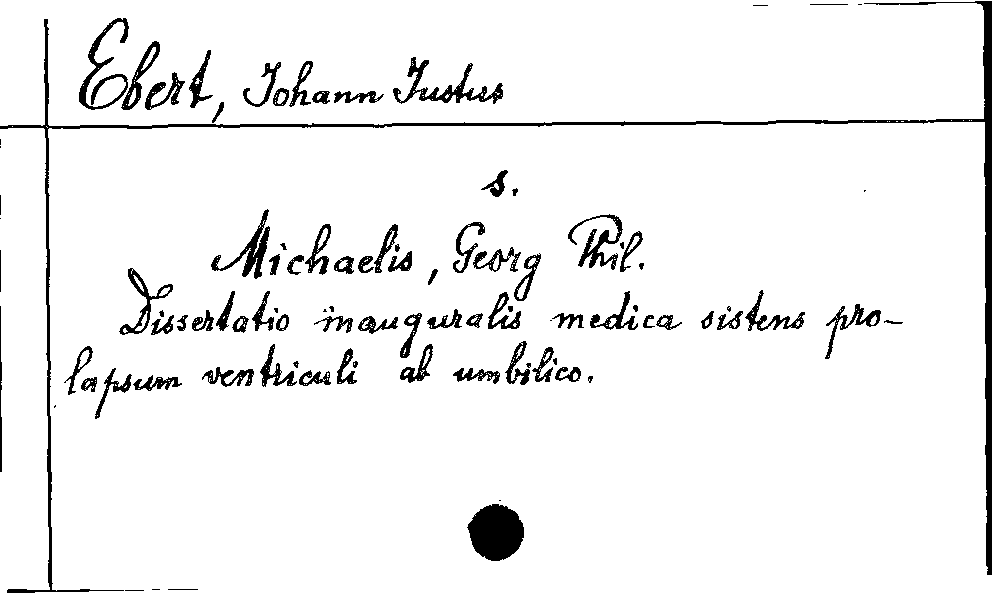 Ebert, Johann Justus
s.
Michaelis, Georg Phil.
Dissertatio inauguralis medica sistens pro-
lapsum ventriculi ab umbilico.